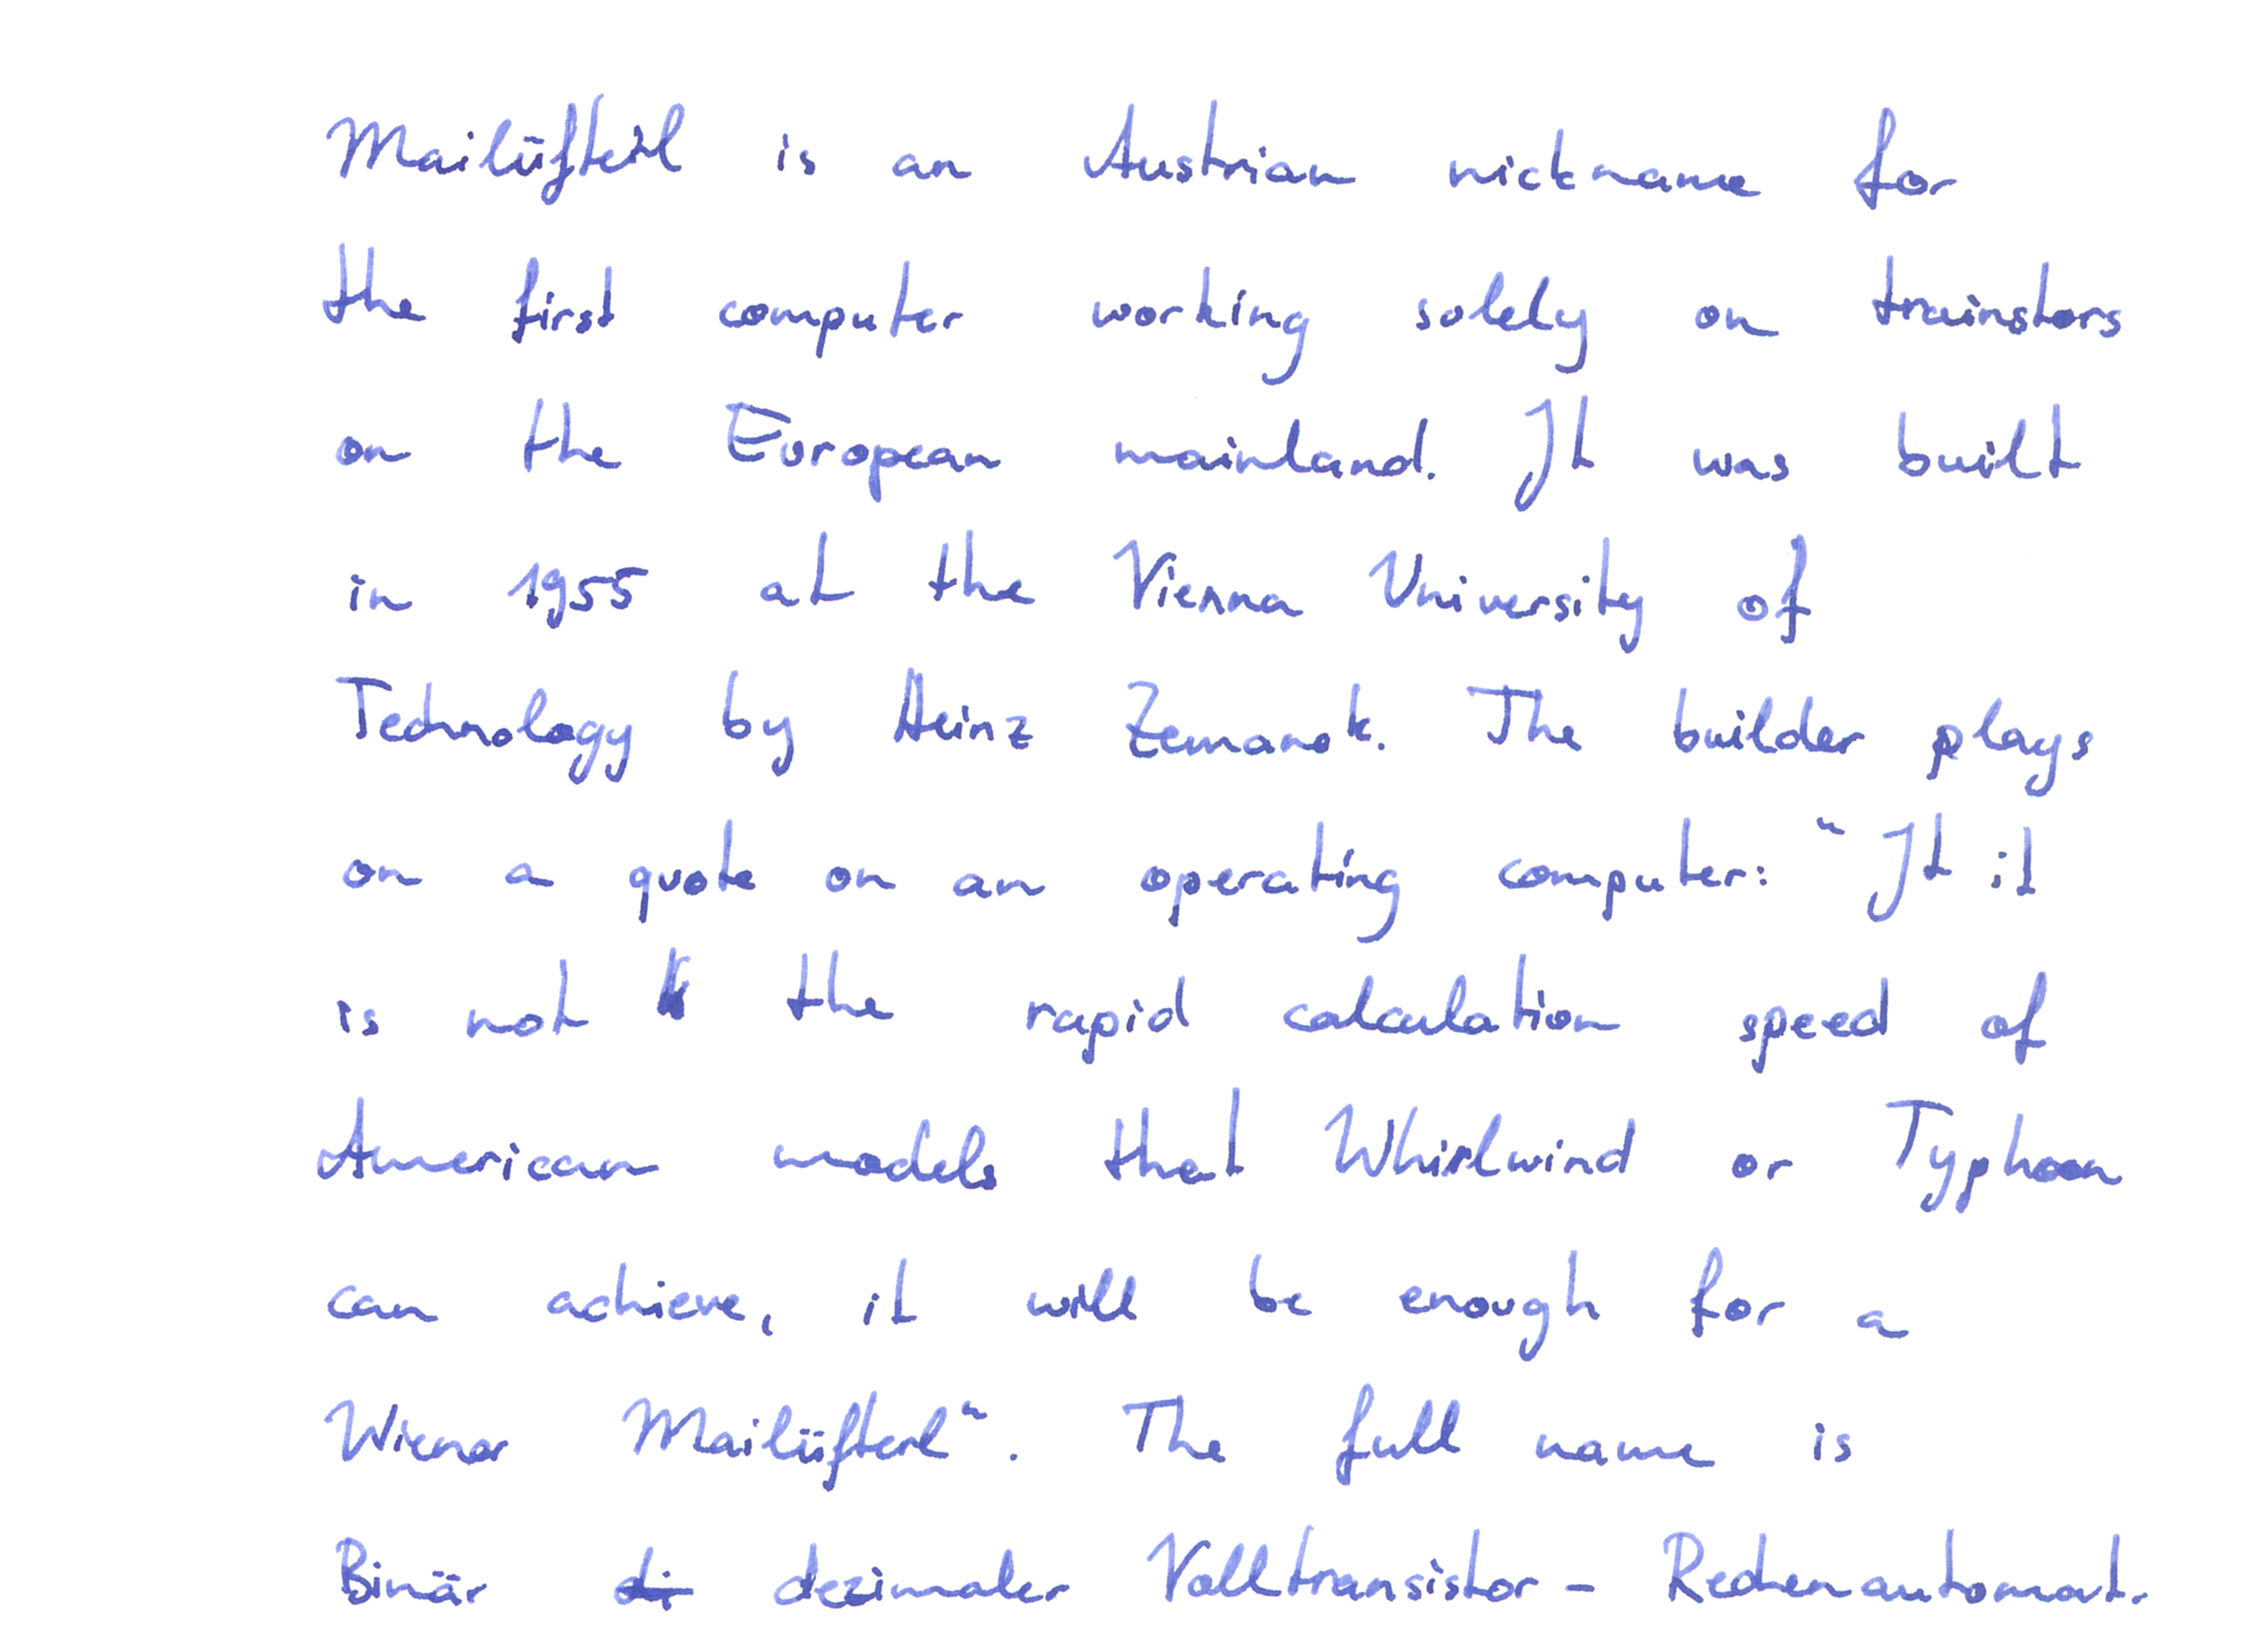 Mailüfterl is an Austrian nickname for
the first computer working solely on trainstors
on the European mainland. It was built
in 1955 at the Vienna University of
Technology by Heinz Zemanek. The builder plays
on a quote on an operating computer: "It it
is not the rapid calculation speed of
American models that Whirlwind or Typhoon
can achieve, it will be enough for a
Wiener Mailüfterl". The full name is
Binär dezimaler Volltransistor - Rechenautomat.